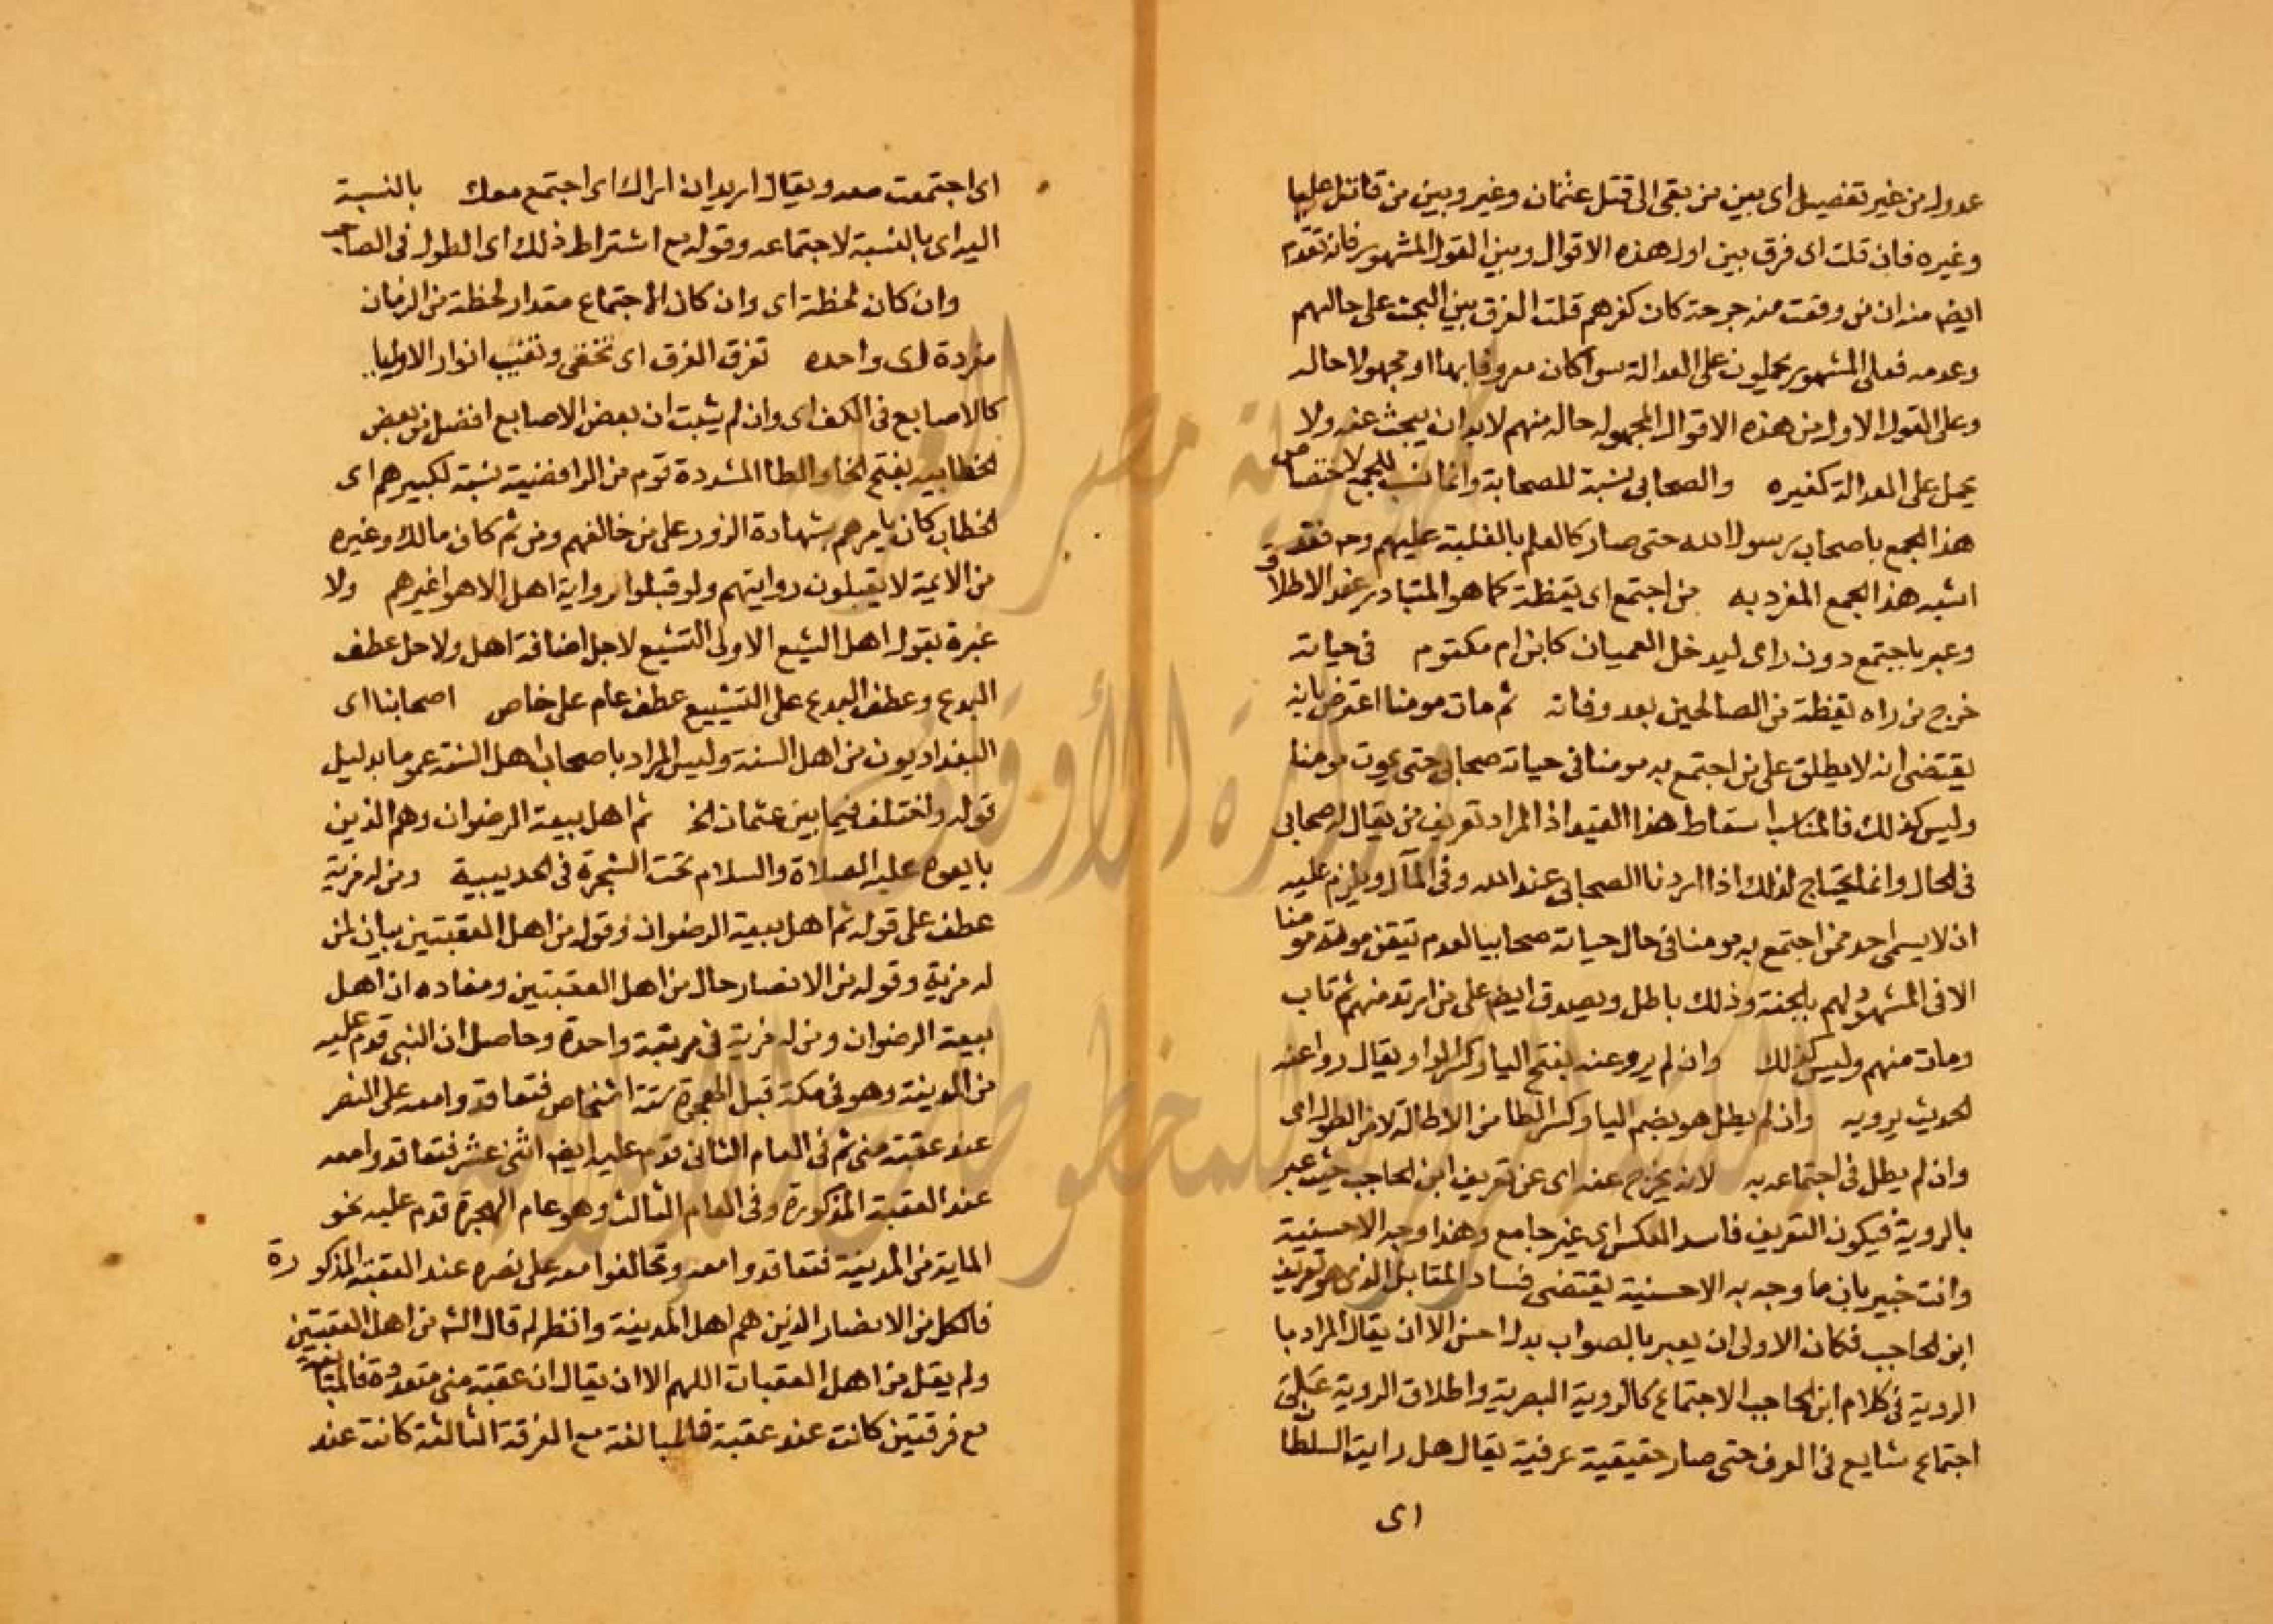 عدول من غير تفصيل اى بين من بقى الى قتل عثمان وغيره وبين من قاتل عليا
وغيره فان قلت اى فرق بين اول هذه الاقوال وبين القول المشهور فانه تقدم
ايضا منه ان من وقعت منه جرحة كان كغيرهم قلت الفرق بين البحث على حالهم
وعدمه فعلى المشهور يحملون على العدالة سوا كان معروفا بها او مجهولا حاله
وعلى القول الاول من هذه الاقوال المجهول حاله منهم لابد ان يبحث عنه ولا
يحمل على العدالة كغيره والصحابى نسبة للصحابة وانما نسب للجمع لاختصاص
هذا الجمع باصحاب رسول الله حتى صار كالعلم بالغلبة عليهم وح فقد
اشبه هذا الجمع المفرد به من اجتمع اى يقظة كما هو المتبادر عند الاطلاق
وعبر باجتمع دون راى ليدخل العميان كابن ام مكتوم فى حياته
خرج من راه يقظة من الصالحين بعد وفاته ثم مات مومنا اعترض بانه
يقتضى انه لا يطلق على من اجتمع به مومنا فى حياته صحابى حتى يموت مومنا
وليس كذلك فالمناسب اسقاط هذا القيد اذ المراد تعريف من يقال له صحابى
فى الحال وانما يحتاج لذلك اذا اردنا الصحابى عند الله وفى المآل ويلزم عليه
ان لا يسمى احد ممن اجتمع به مومنا فى حال حياته صحابيا لعدم تيقن موته مومنا
الا فى المشهود لهم بالجنة وذلك باطل ويصدق ايضا على من ارتد منهم ثم تاب
ومات منهم وليس كذلك وان لم يرو عنه بفتح اليا وكسر الواو يقال روا عنه
الحديث يرويه وان لم يطل هو بضم اليا وكسر الطا من الاطالة لا من الطول اى
وان لم يطل فى اجتماعه به لانه يخرج عنه اى عن تعريف ابن الحاجب حيث عبر
بالروية فيكون التعريف فاسد العكس اى غير جامع وهذا وجه الاحسنية
وانت خبير بان ما وجه به الاحسنية يقتضى فساد المقابل الذى هو تعريف
ابن الحاجب فكان الاولى ان يعبر بالصواب بدل احسن الا ان يقال المراد با
الروية فى كلام ابن الحاجب الاجتماع كالروية البصرية واطلاق الروية على
اجتماع شايع فى العرف حتى صار حقيقية عرفية يقال هل رايت السلطان
اى
اى اجتمعت معه ويقال اريد ان اراك اى اجتمع معك بالنسبة
اليه اى بالنسبة لاجتماعه وقوله مع اشتراط ذلك اى الطول فى الصاحب
وان كان لحظة اى وان كان الاجتماع مقدار لحظة من الزمان
مفردة اى واحده تفرق الفرق اى تخفى وتغيب انوار الاوليا
كالاصابع فى الكف اى وان لم يثبت ان بعض الاصابع افضل من بعض
الخطابيه بفتح الخا والطا المشددة قوم من الرافضية نسبة لكبيرهم اى
الخطاب كان يامرهم بشهادة الزور على من خالفهم ومن ثم كان مالك وغيره
من الايمة لا يقبلون روايتهم ولو قبلوا رواية اهل الاهوا غيرهم ولا
عبرة بقول اهل الشيع الاولى التشيع لاجل اضافة اهل ولاجل عطف
البدع وعطف البدع على التشييع عطف عام على خاص اصحابنا اى
البغداديون من اهل السنة وليس المراد باصحاب اهل السنة عموما بدليل
قوله واختلف فيما بين عثمان الخ ثم اهل بيعة الرضوان وهم الذين
بايعوه عليه الصلاة والسلام تحت الشجرة فى الحديبية ومن له مزية
عطف على قوله ثم اهل بيعة الرضوان وقوله من اهل العقبتين بيان لمن
له مزية وقوله من الانصار حال من اهل العقبتين ومفاده ان اهل
بيعة الرضوان ومن له مزية فى مرتبة واحدة وحاصل ان النبى قدم عليه
من المدينة وهو فى مكة قبل الهجرة ستة اشخاص فتعاقدوا معه على النصر
عند عقبة منى ثم فى العام الثانى قدم عليه ايضا اثنى عشر فتعاقدوا معه
عند العقبة المذكورة وفى العام الثالث وهو عام الهجرة قدم عليه نحو
الماية من المدينة فتعاقدوا معه وتحالفوا معه على نصره عند العقبة المذكورة
فالكل من الانصار الذين هم اهل المدينة وانظر لم قال الشه من اهل العقبتين
ولم يقل من اهل العقبات اللهم الا ان يقال ان عقبة منى متعددة فالمبايعة
مع فرقتين كانت عند عقبة فالمبالغة مع الفرقة الثالثة كانت عند
جمهورية مصر العربية
وزارة الأوقاف